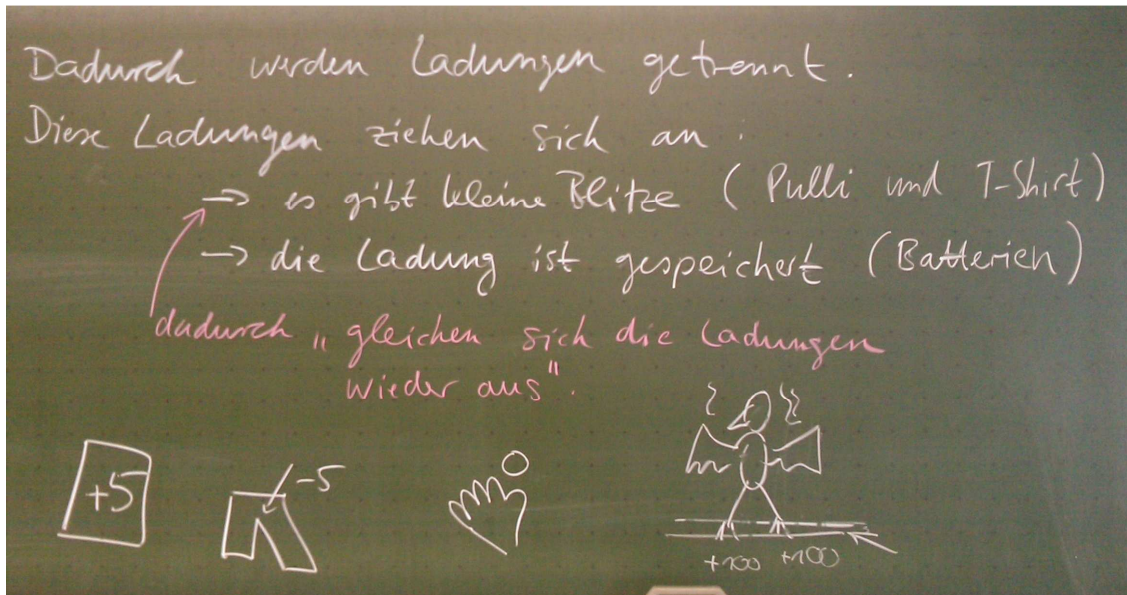 Dadurch werden Ladungen getrennt.
Diese Ladungen ziehen sich an:
→ es gibt kleine Blitze (Pulli und T-Shirt)
→ die Ladung ist gespeichert (Batterien)
dadurch „gleichen sich die Ladungen
wieder aus".
+5
-5
+100 +100